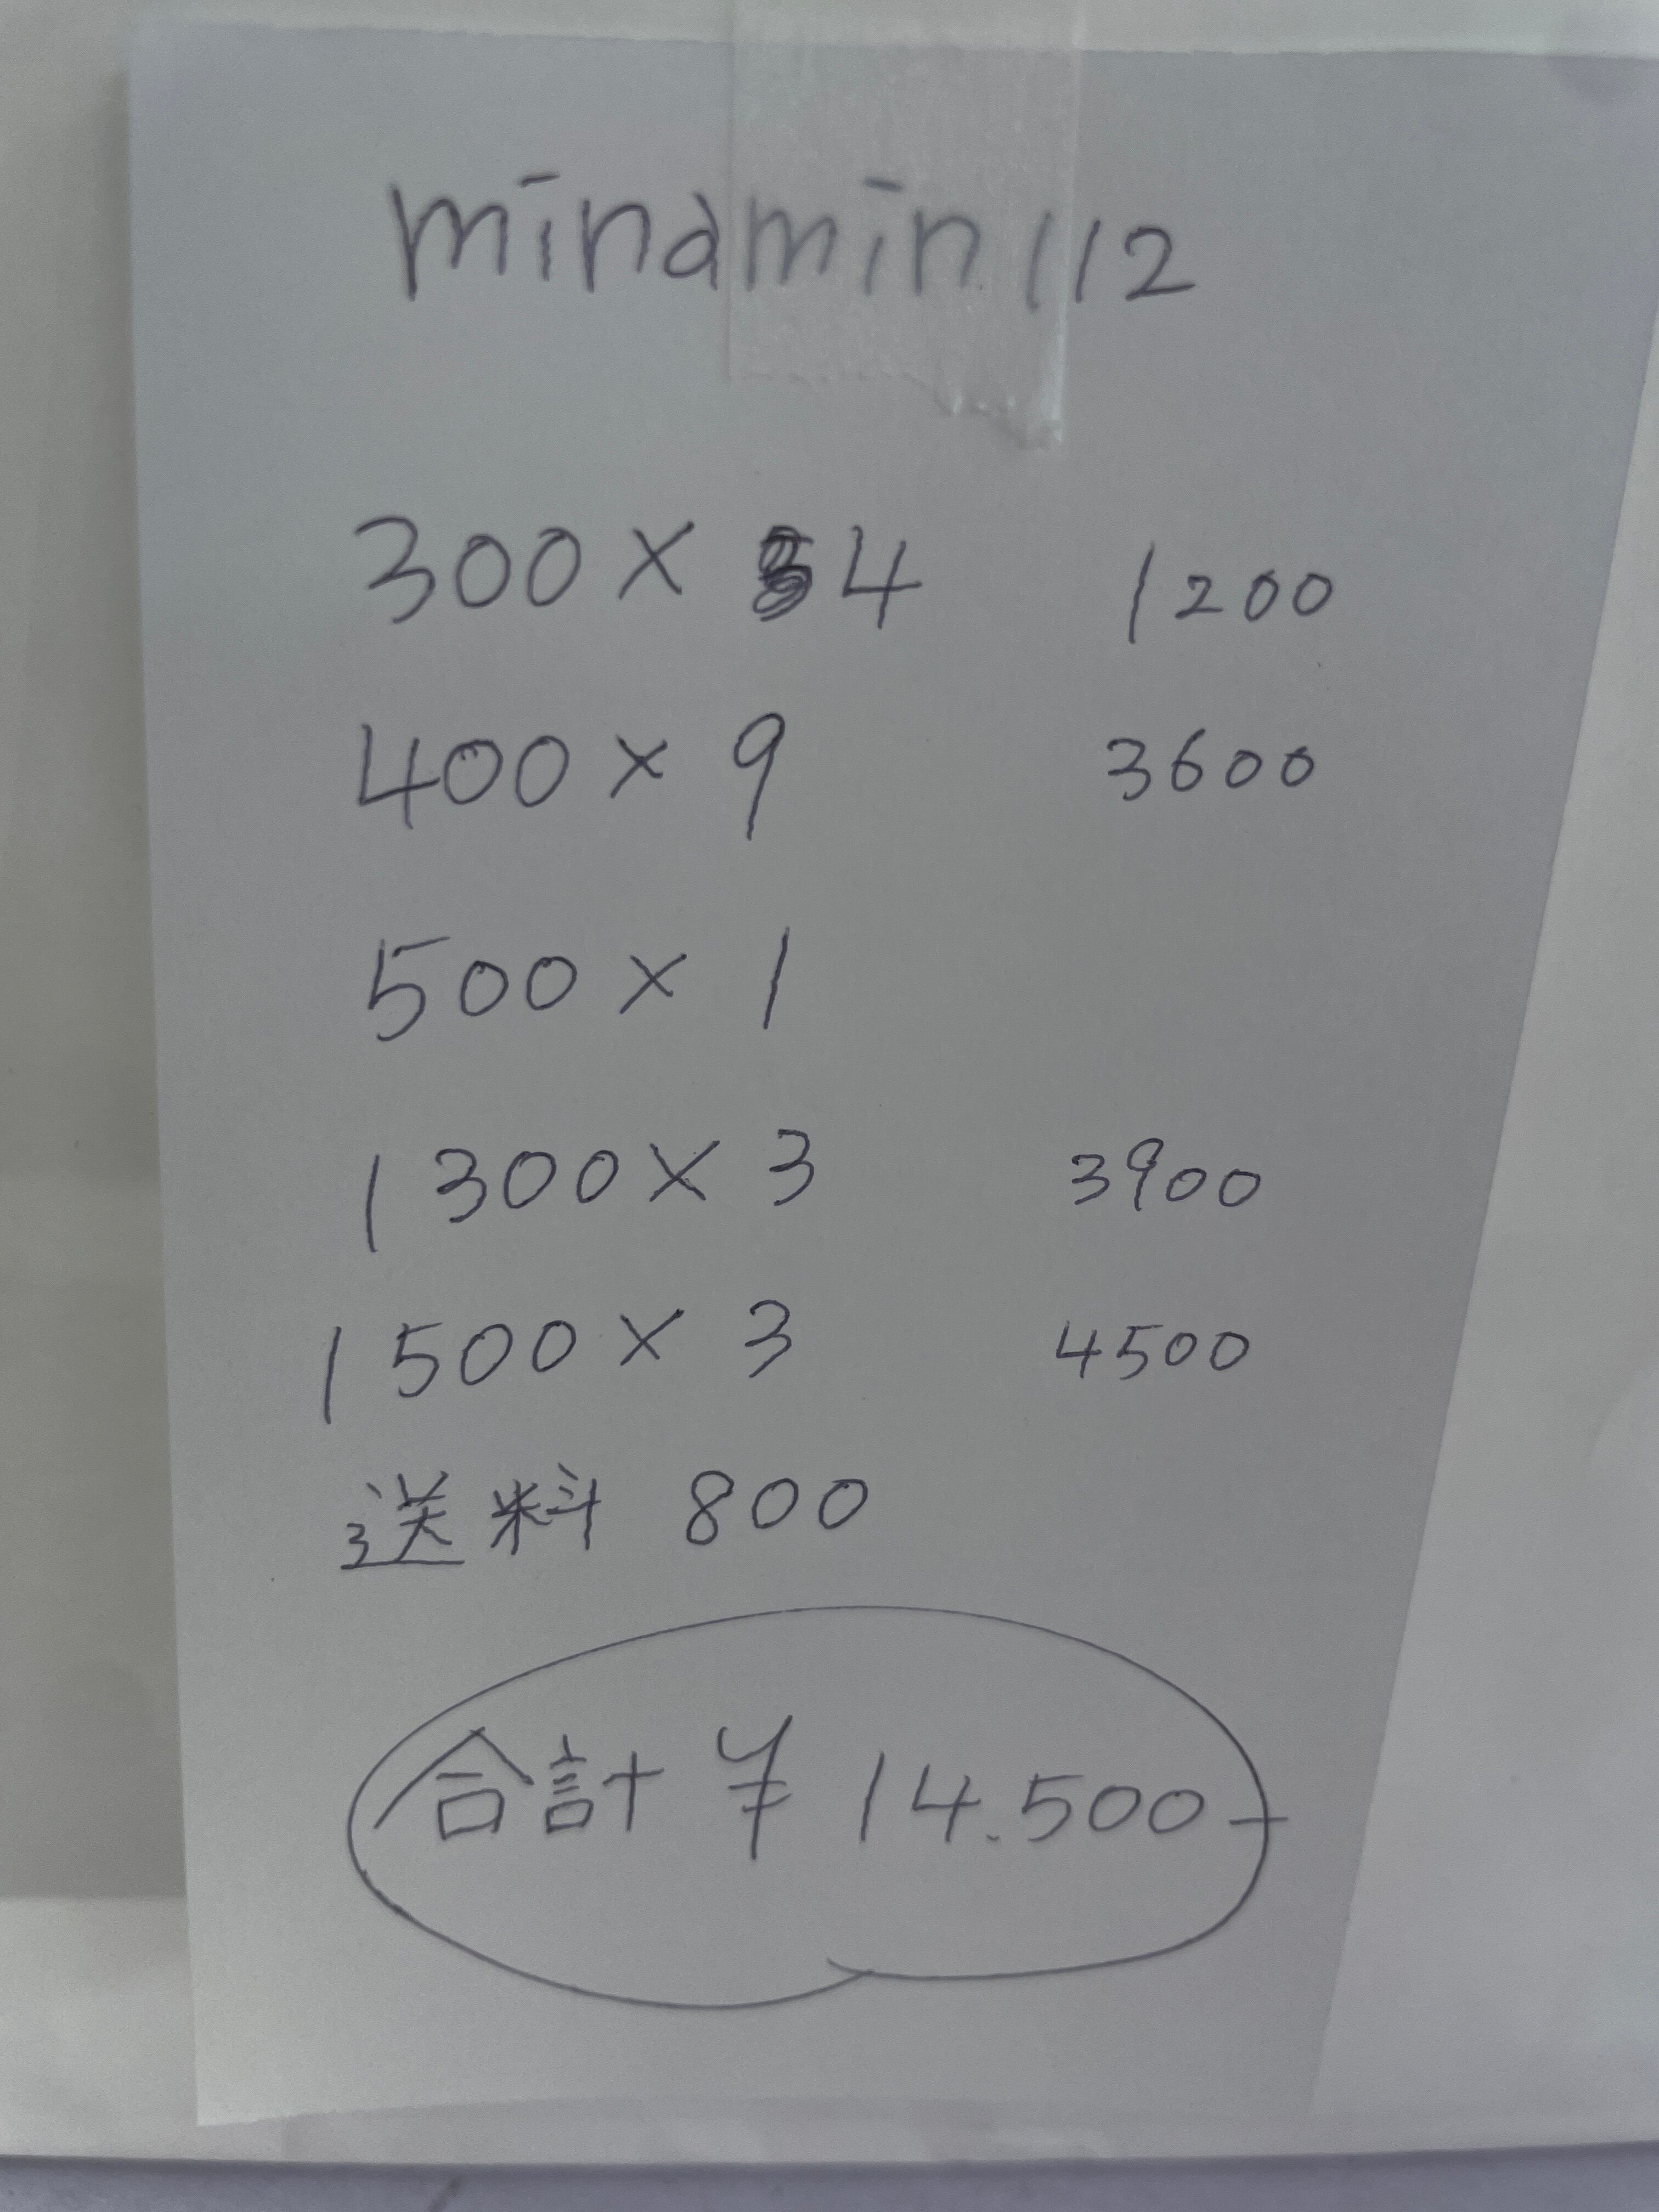 minamin112
300×4 1200
400×9 3600
500×1
1300×3 3900
1500×3 4500
送料 800
合計 ¥14.500-